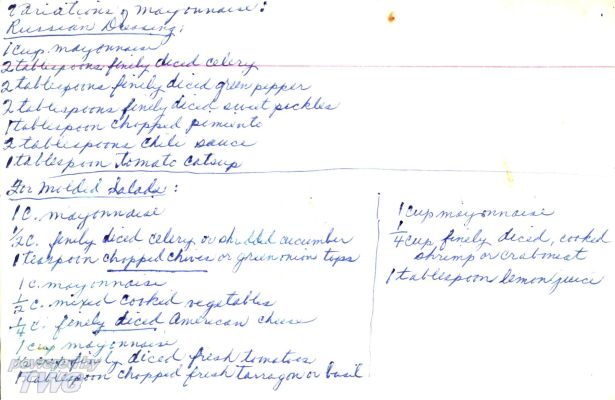 Variations of Mayonnaise:
Russian Dressing:
1 cup mayonnaise
2 tablespoons finely diced celery
2 tablespoons finely diced green pepper
2 tablespoons finely diced sweet pickles
1 tablespoon chopped pimiento
2 tablespoons chile sauce
1 tablespoon tomato catsup
For Molded Salads:
1 c. mayonnaise
1/2 c. finely diced celery or shredded cucumber
1 teaspoon chopped chives or green onion tops
1 c. mayonnaise
1/2 c. mixed cooked vegetables
1/4 c. finely diced American cheese
1 cup mayonnaise
cup finely diced fresh tomatoes
1 tablespoon chopped fresh tarragon or basil
1 cup mayonnaise
1/4 cup finely diced, cooked
shrimp or crabmeat
1 tablespoon lemon juice
powered by
TWG